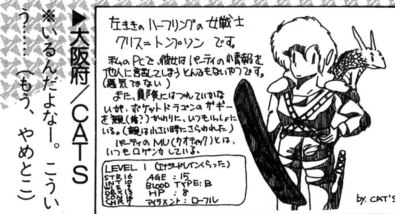 左ききのハーフリングの女戦士
クリス=トンプソン です。
私のPCで、彼女はパーティの小情報を
他人に言ってしまうとんでもないやつです。
(悪気はない)
また、貴族にはつかれていな
いが、ポケットドラゴンのガギー
を親(?)がわりに、いつもいっしょに
いる。(親は小さい時にさらわれた)
パーティのMU(クオティック)とは、
いつもロゲンカしている。
LEVEL 1 (エナジードレインくらった)
STR 16 AGE : 15
BLOOD TYPE: B
HP : 8
アライメント: ローフル
by. CAT'S
▶大阪府/CATS
※いるんだよなー。こうい
う……(もう、やめとこ)